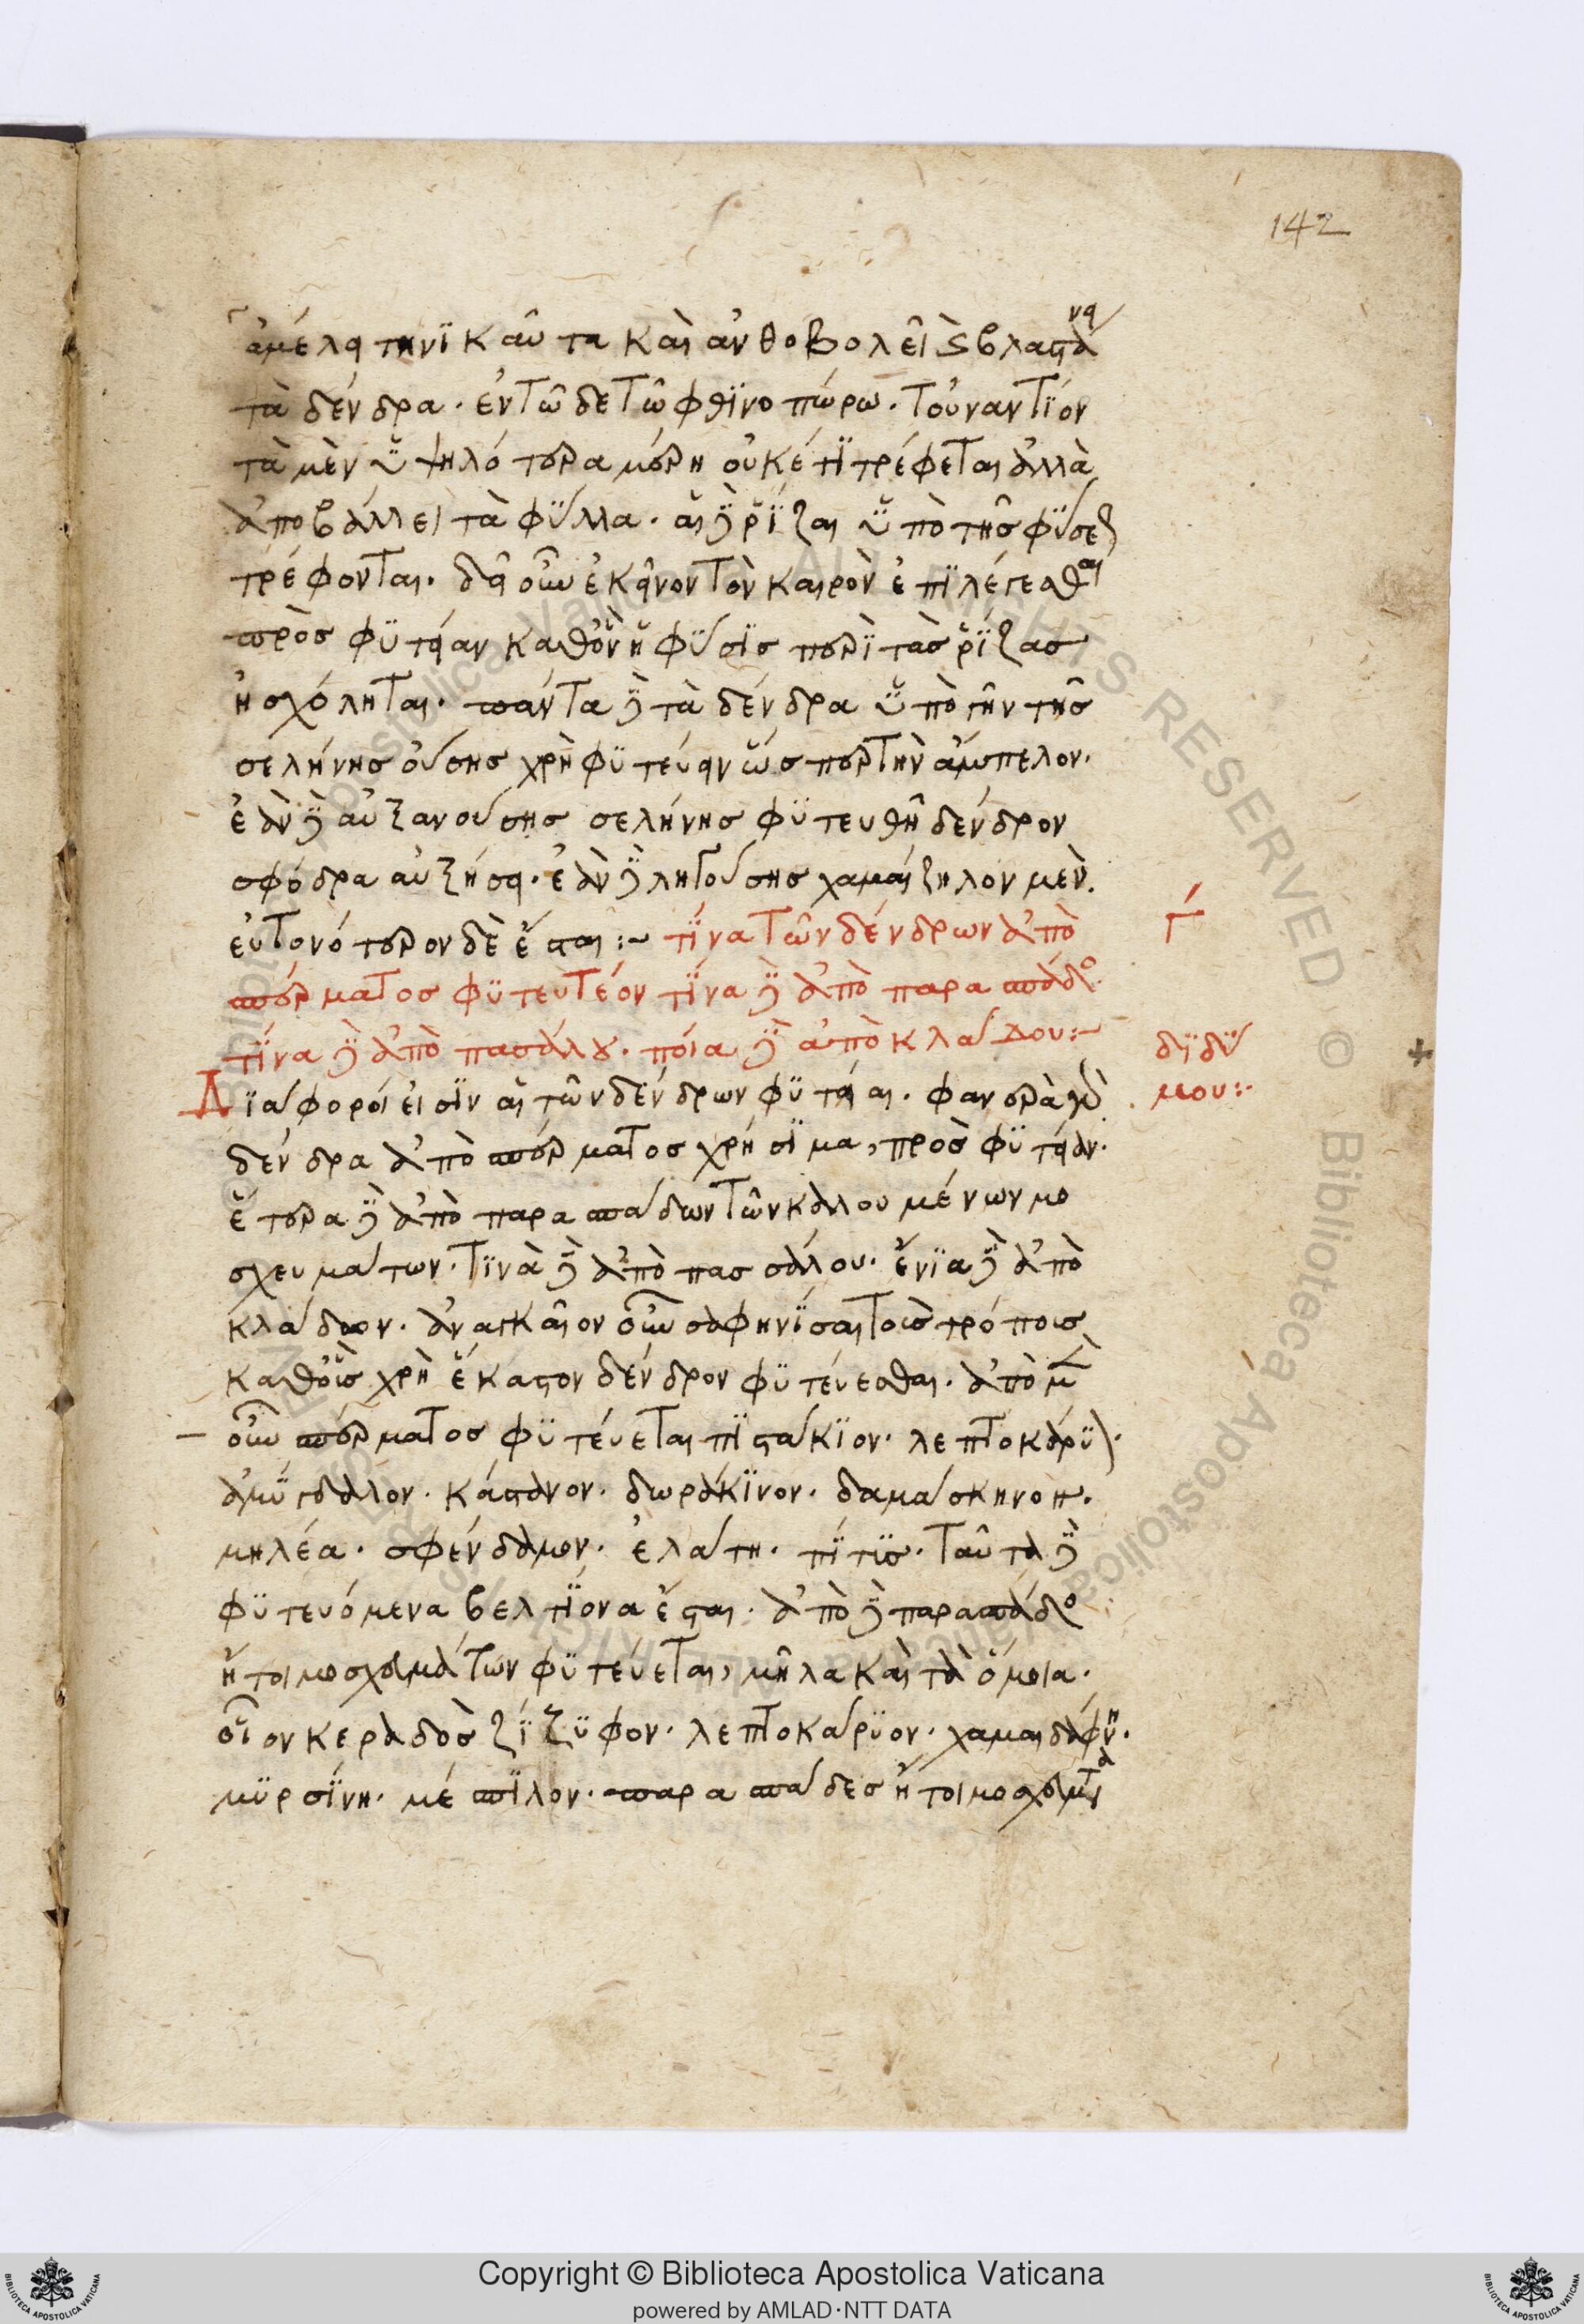 142
ἀμέλει τηνϊκαῦτα καὶ ἀνθοβολεῖ καὶ βλαστάνει
τὰ δένδρα· ἐν τῶ δὲ τῶ φθϊνοπώρω· τοὐναντίον
τὰ μὲν ὑψηλότερα μέρη οὐκέτϊ τρέφεται ἀλλὰ
ἀποβάλλει τὰ φύλλα· αἱ δὲ ῥίζαι ὑπὸ τῆς φύσεως
τρέφονται. δεῖ οὖν ἐκεῖνον τὸν καιρὸν ἐπϊλέγεσθαι
πρὸς φϋτείαν καθ' ὃν ἡ φύσϊς περὶ τὰς ῥίζας
ἠσχόληται. πάντα δὲ τὰ δένδρα ὑπὸ γῆν τῆς
σελήνης οὔσης χρὴ φϋτεύειν ὥσπερ τὴν ἄμπελον.
ἐὰν δὲ αὐξανούσης σελήνης φϋτευθῆ δένδρον
σφόδρα αὐξήσει. ἐὰν δὲ ληγούσης χαμαίζηλον μὲν.
εὐτονότερον δὲ ἔσται :~ τίνα τῶν δένδρων ἀπὸ
Γ´
σπέρματος φϋτευτέον τίνα δὲ ἀπὸ παρασπάδο
τίνα δὲ ἀπὸ πασάλου. ποία δὲ ἀπὸ κλάδου :~
δϊδύ
μου :~
Δϊάφοροί εἰσϊν αἱ τῶν δένδρων φϋτείαι. φανερὰ γὰρ
δένδρα ἀπὸ σπέρματος χρήσϊμα, πρὸς φϋτείαν.
ἕτερα δὲ ἀπὸ παρασπάδων τῶν καλλουμένων μο
σχευμάτων. τϊνὰ δὲ ἀπὸ πασσάλου. ἔνϊα δὲ ἀπὸ
κλάδων. ἀναγκαῖον οὖν σαφηνίσαι τοὺς τρόποις
καθ' οἷς χρὴ ἕκαστον δένδρον φϋτεύεσθαι. ἀπὸ μὲν
οὖν σπέρματος φϋτεύεται πϊστάκϊον. λεπτοκάρϋον.
ἀμύγδαλλον. κάστανον. δωράκϊνον. δαμάσκηνον.
μηλέα. σφένδαμον. ἐλάτη. πίτϋς. ταῦτα δὲ
φϋτευόμενα βελτίονα ἔσται. ἀπὸ δὲ παρασπάδο
ἤτοι μοσχευμάτων φϋτεύεται, μῆλα καὶ τὰ ὅμοια.
οἷον κεραδὸς ζίζϋφον. λεπτοκάρϋον. χαμαιδάφνη.
μϋρσίνη. μέσπϊλον. παρασπάδες ἤτοι μοσχεύματα
Copyright © Biblioteca Apostolica Vaticana
powered by AMLAD·NTT DATA